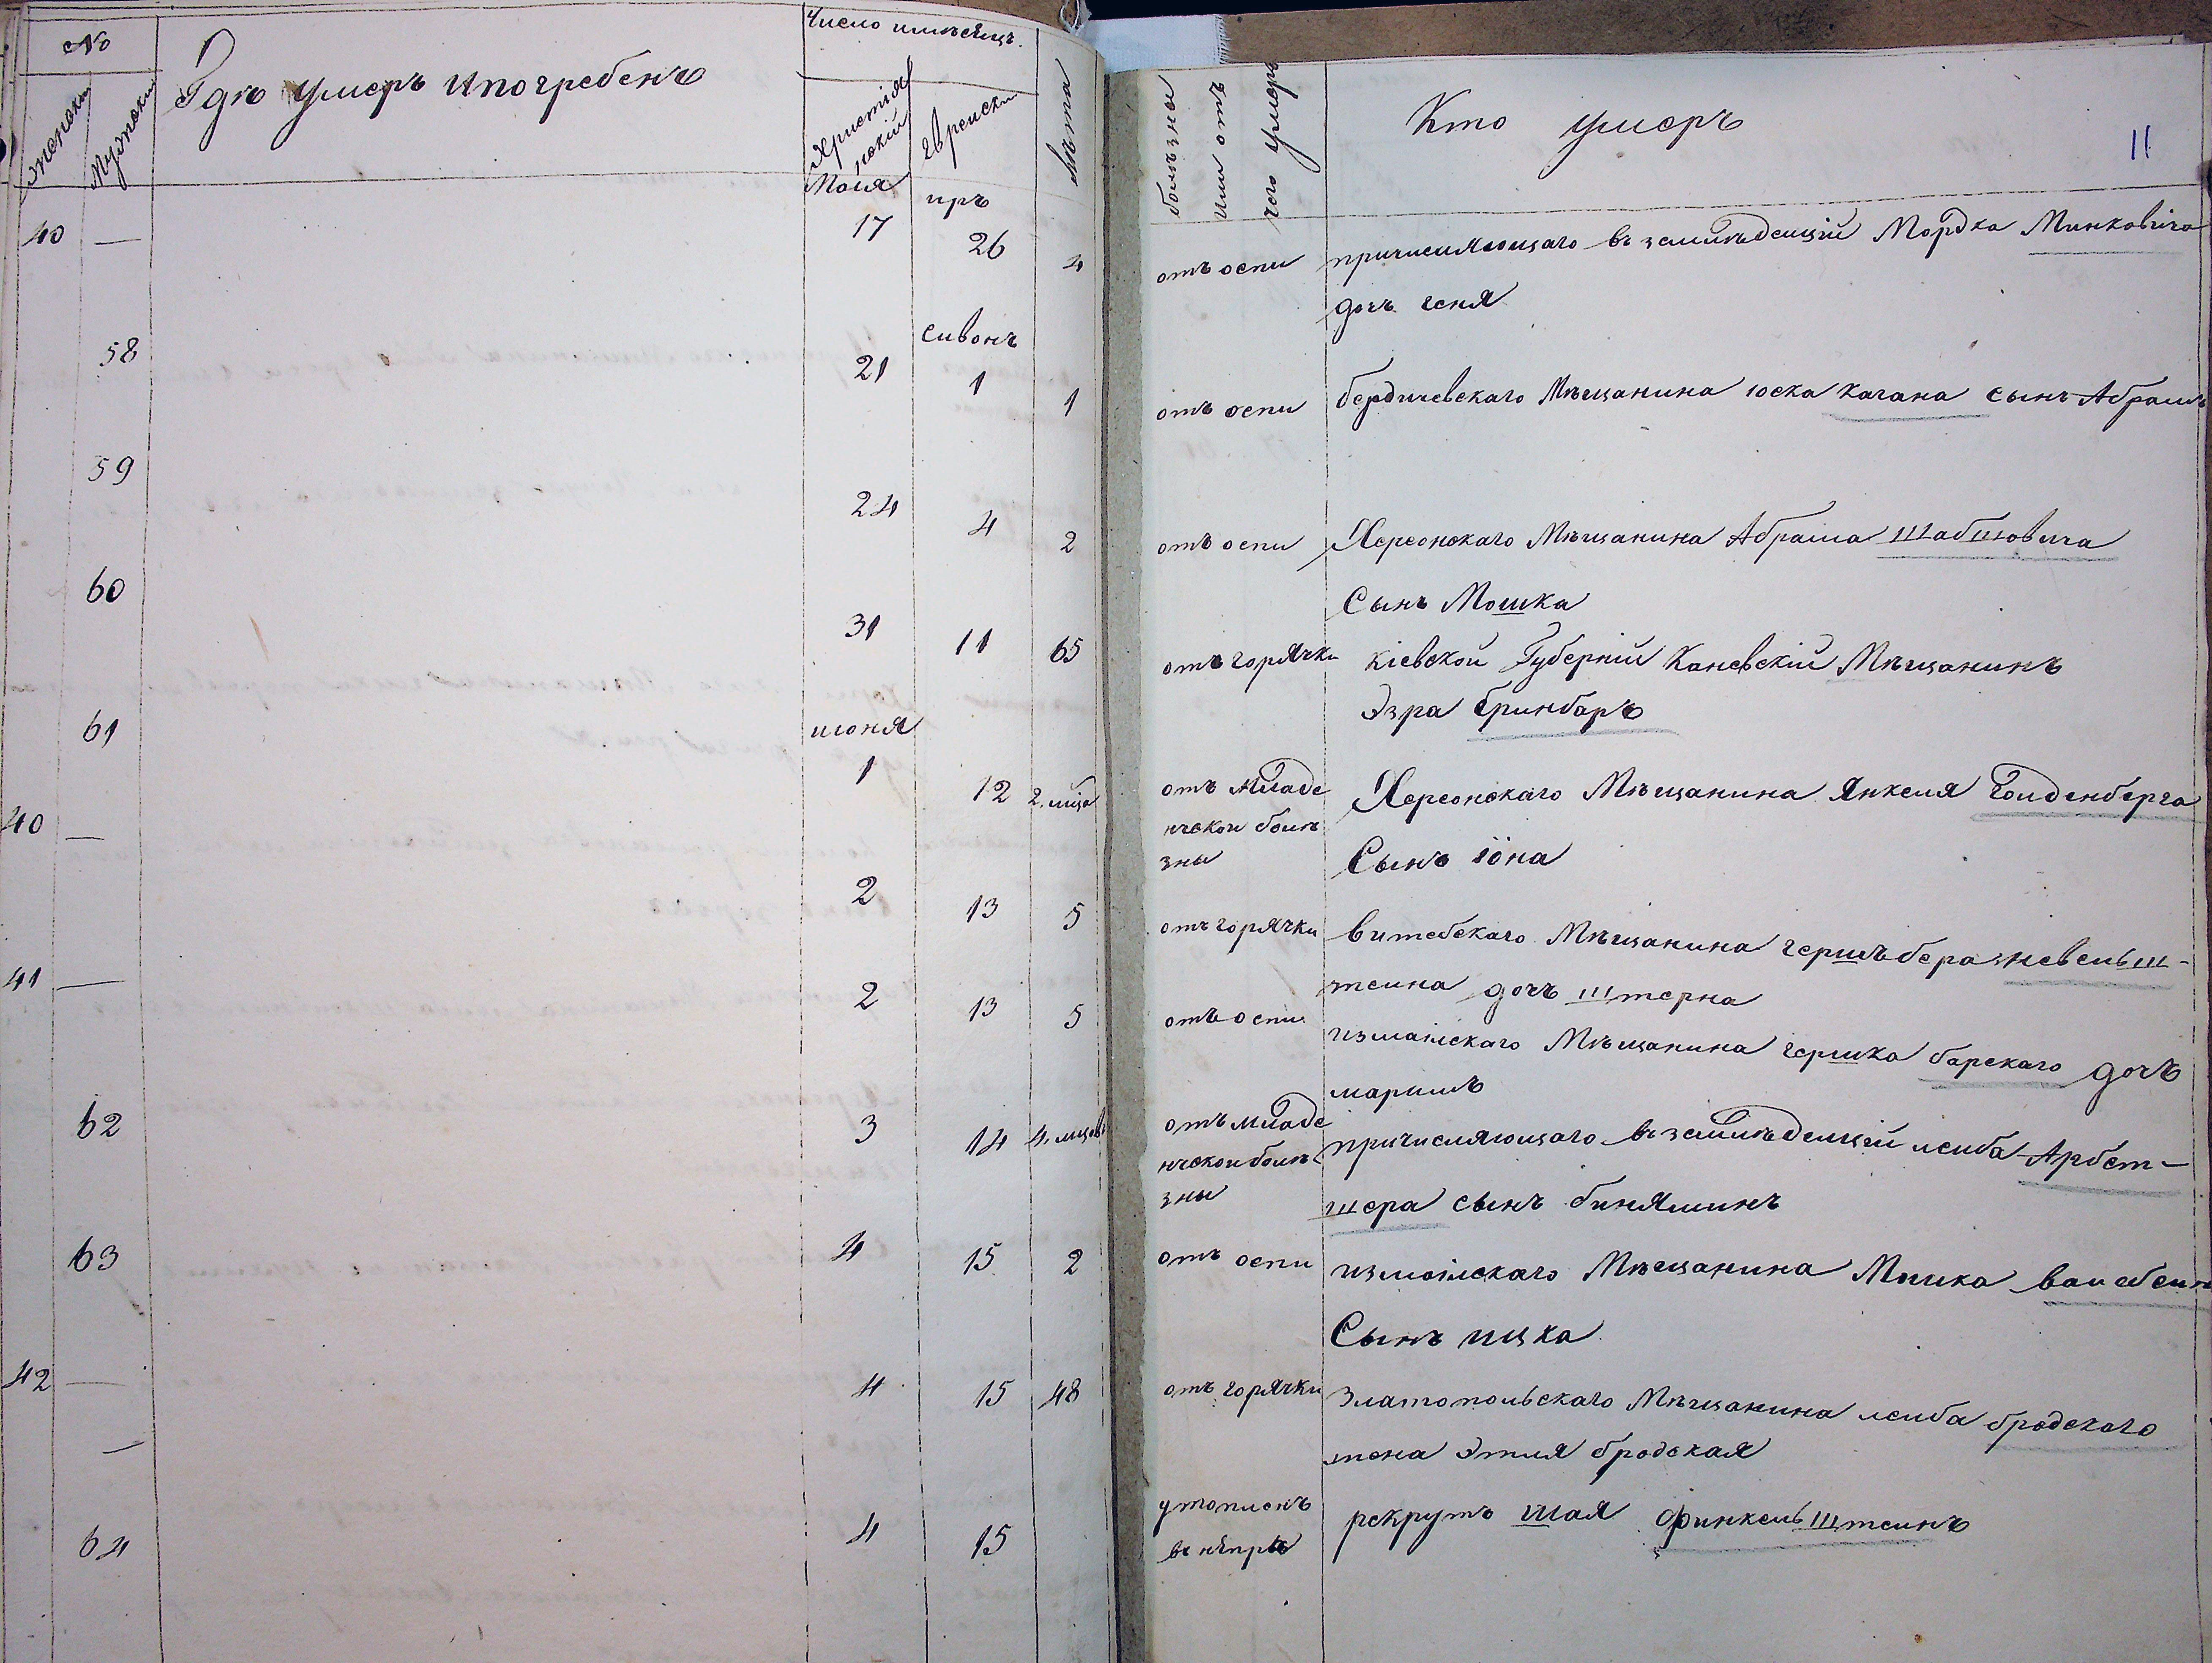 №
Женски
Мужески
Гдѣ умеръ и погребенъ
Число и мѣсяцъ.
Христіянскій
Еврейски
Лѣта
болѣзны
или отъ
чего умеръ
Кто умеръ
11
Маія иръ
40 — 17 26 4 отъ оспи причисляющаго въ земледелцій Мордка Минковича
дочъ геня
сивонъ
58 21 1 1 отъ оспи бердичевскаго Мѣщанина іоска Кагана сынъ Абрамъ
59 24 4 2 отъ оспи Херсонскаго Мѣщанина Абрама Шабшовича
Сынъ Мошка
60 31 11 65 отъ горячки Кіевской Губерніи Каневскій Мѣщанинъ
Эзра Гринбаръ
июня
61 1 12 2. мѣца отъ младе Херсонскаго Мѣщанина Янкеля Голденберга
нческои болѣ
зны Сынъ іона
40 — 2 13 5 отъ горячки витебскаго Мѣщанина гершъ бера невельш-
теина дочъ штерна
41 — 2 13 5 отъ оспи измаілскаго Мѣщанина гершка барскаго дочъ
маримъ
62 3 14 4. мцовъ отъ младе причисляющаго въ земледелцій леиба Арбет-
нческои болѣ
зны шера сынъ биняминъ
63 4 15 2 отъ оспи измаілскаго Мѣщанина
Сынъ ицка.
42 — 4 15 48 отъ горячки Златопольскаго Мѣщанина леиба бродскаго
— жена Этля бродская
64 4 15 утопленъ рекрутъ шая финкельштеинъ
въ нѣпръ